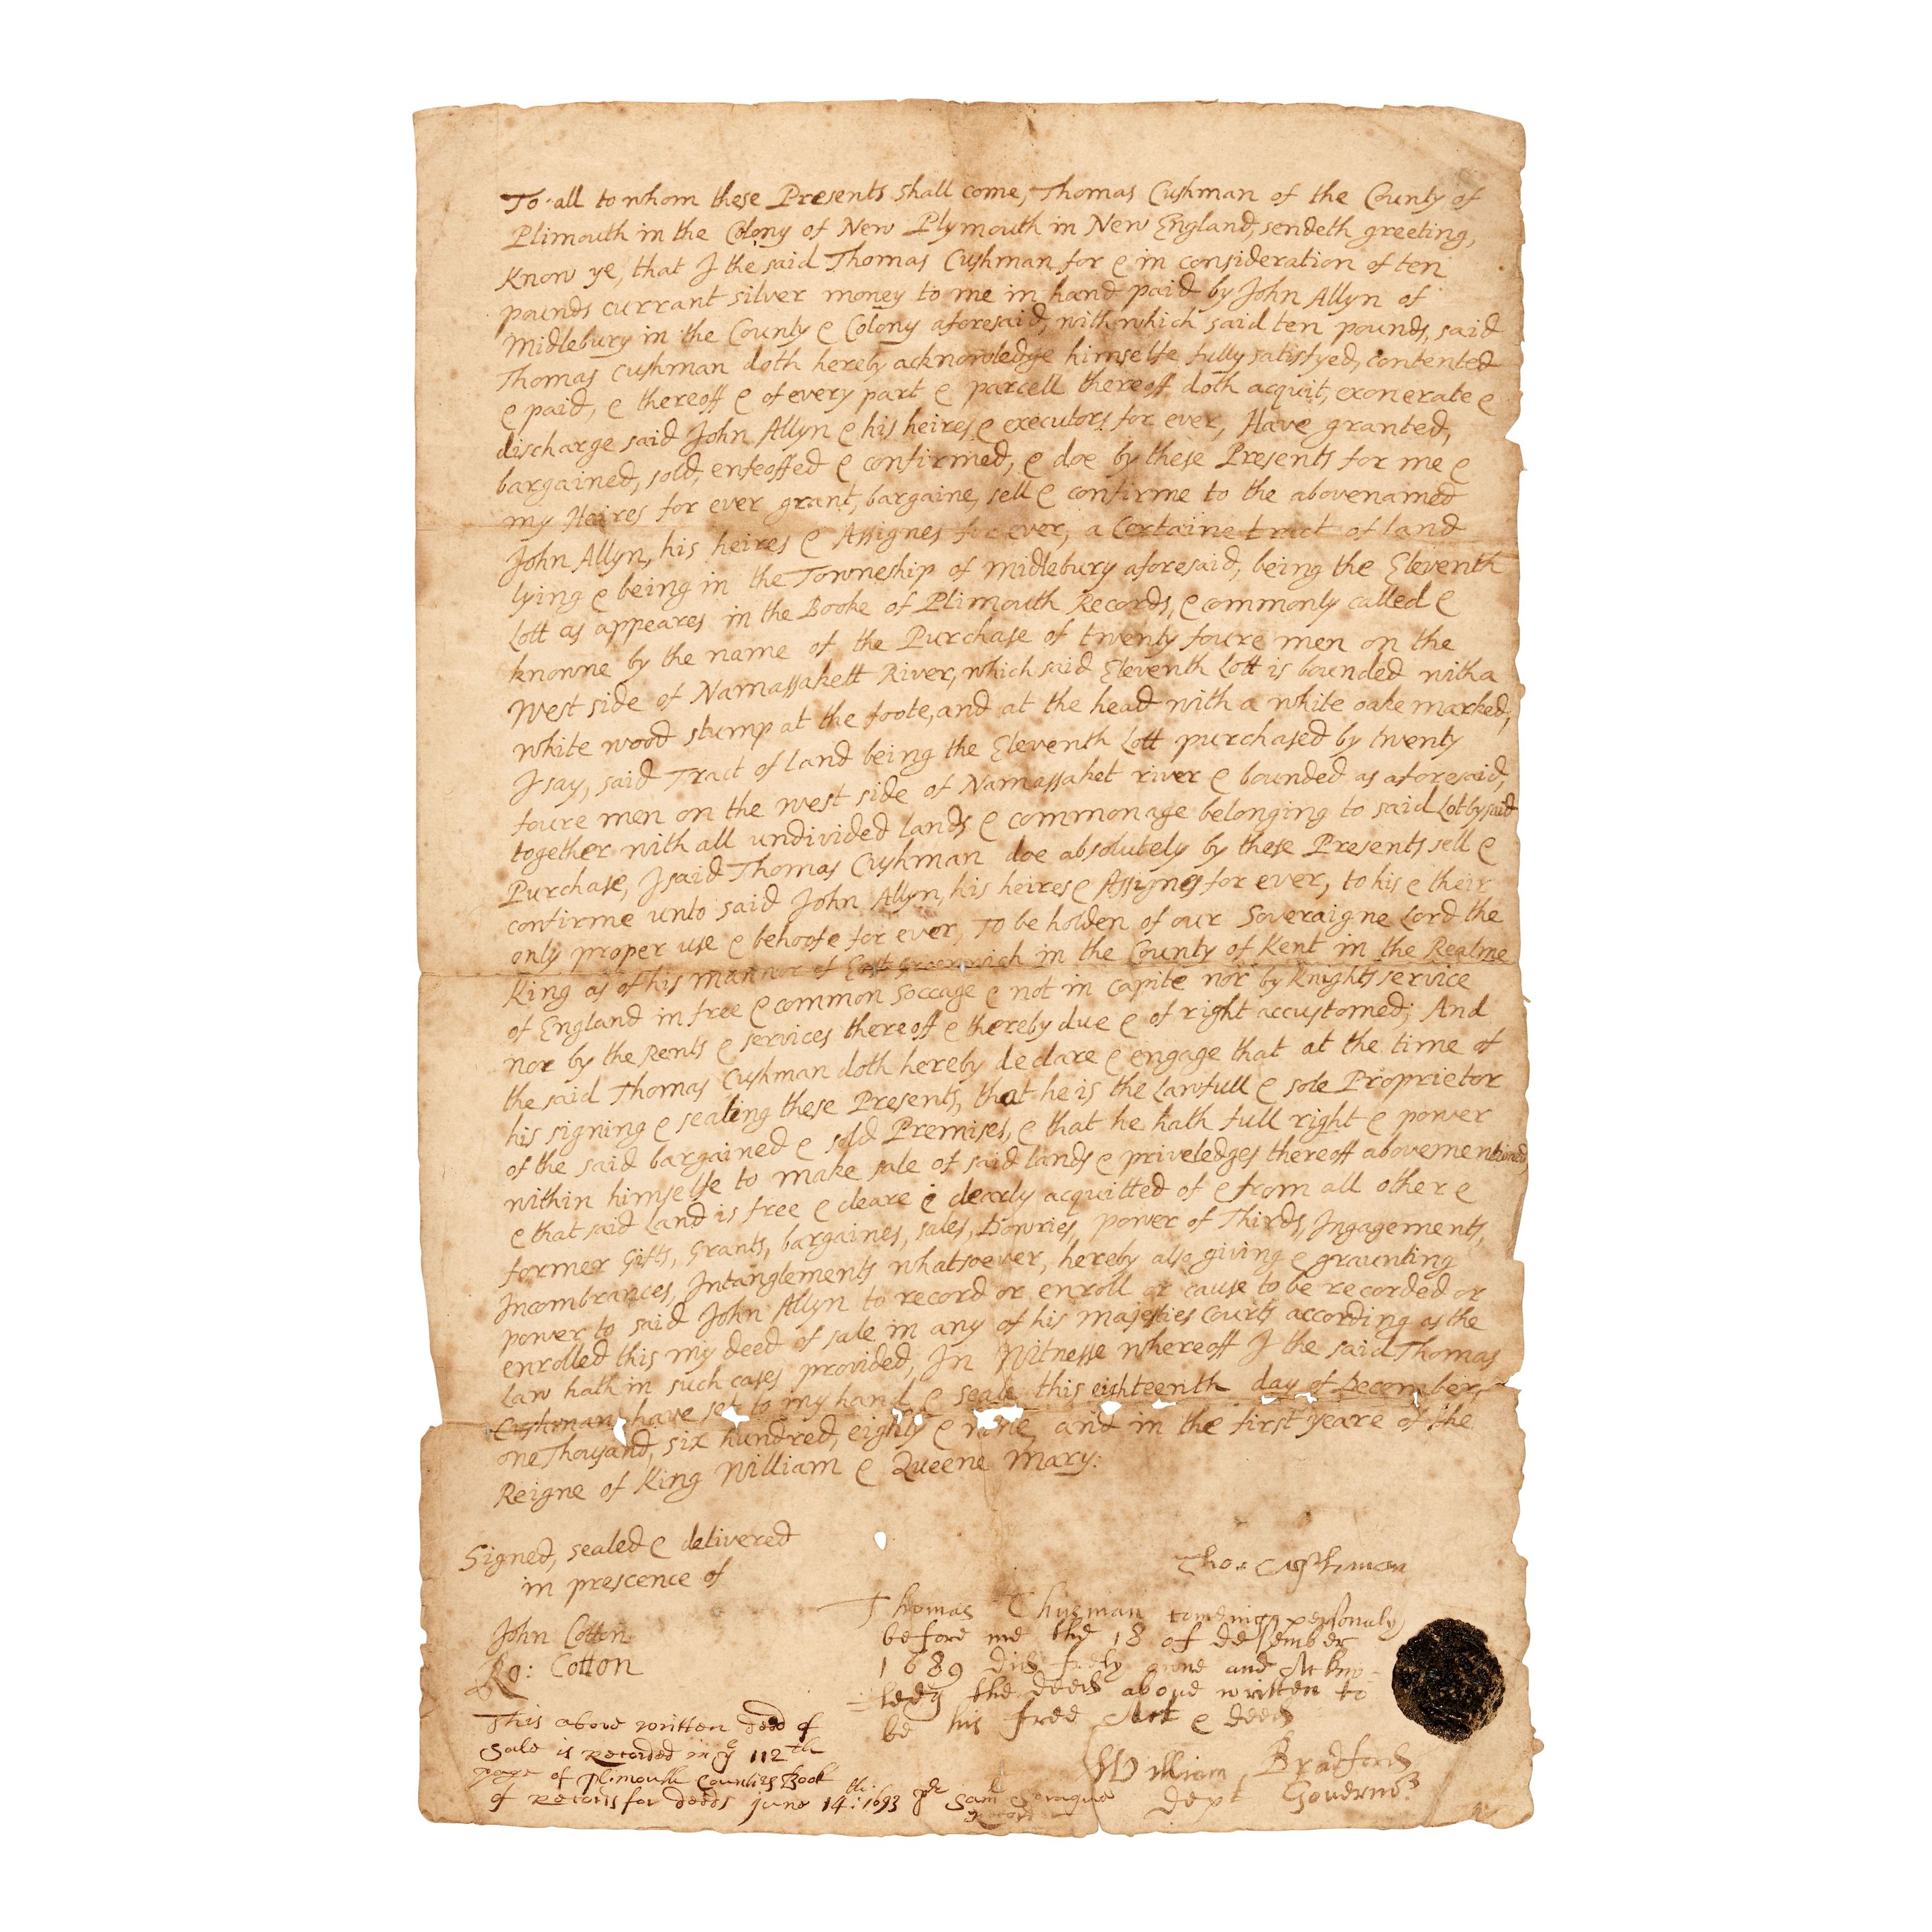 To all to whom these Presents shall come, Thomas Cushman of the County of
Plimouth in the Colony of New Plymouth in New England, sendeth greeting,
Know ye, that I the said Thomas Cushman for & in consideration of ten
pounds currant silver money to me in hand paid by John Allyn of
Midlebury in the County & Colony aforesaid, with which said ten pounds, said
Thomas Cushman doth hereby acknowledge himselfe fully satisfyed, contented
& paid, & thereoff & of every part & parcell thereoff doth acquit, exonerate &
discharge said John Allyn & his heires & executors for ever, Have granted,
bargained, sold, enfeoffed & confirmed, & doe by these Presents for me &
my Heires for ever grant, bargaine, sell & confirme to the abovenamed
John Allyn, his heires & Assignes for ever, a Certaine tract of land
lying & being in the Towneship of Midlebury aforesaid, being the Eleventh
Lott as appeares in the Booke of Plimouth Records, & commonly called &
knowne by the name of the Purchase of twenty foure men on the
West side of Namassakett River, which said Eleventh Lott is bounded with a
white wood stump at the foote, and at the head with a white oake marked,
I say, said Tract of land being the Eleventh Lott purchased by twenty
foure men on the west side of Namassaket river & bounded as aforesaid,
together with all undivided lands & commonage belonging to said Lot by said
Purchase, I said Thomas Cushman doe absolutely by these Presents sell &
confirme unto said John Allyn, his heires & Assignes for ever, to his & their
only proper use & behoofe for ever, To be holden of our Soveraigne Lord the
King as of his mannor of East Greenwich in the County of Kent in the Realme
of England in free & common soccage & not in capite nor by Knights service
nor by the Rents & services thereoff & thereby due & of right accustomed; And
the said Thomas Cushman doth hereby declare & engage that at the time of
his signing & sealing these Presents, that he is the Lawfull & sole Proprietor
of the said bargained & sold Premises, & that he hath full right & power
within himselfe to make sale of said lands & priveledges thereoff abovementioned
& that said Land is free & cleare & clearly acquitted of & from all other &
former Gifts, Grants, bargaines, sales, Dowries, power of Thirds, Ingagements,
Incombrances, Intanglements whatsoever, hereby also giving & graunting
power to said John Allyn to record or enroll or cause to be recorded or
enrolled this my deed of sale in any of his majesties Courts according as the
Law hath in such cases provided, In Witnesse whereoff I the said Thomas
Cushman have set to my hand & seale this eighteenth day of December,
one Thousand, six hundred, eighty & nine, and in the first yeare of the
Reigne of King William & Queene Mary:
Signed, sealed & delivered
in prescence of
John Cotton
Ro: Cotton
Tho: Cushman
Thomas Chusman comeing personaly
before me the 18 of desember
1689 did frely owne and Ackno-
=ledg the deed above written to
be his free Act & deed
William Bradford
Dept Governor
This above written deed of
Sale is Recorded in ye 112th
page of Plimouth Counties Book
of Records for deeds June 14th: 1693 pr Saml Sprague
Recorder